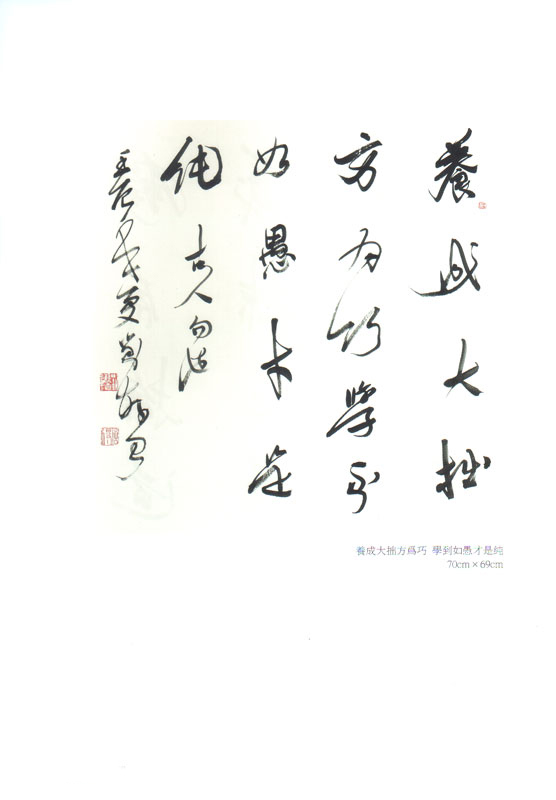 養成大拙
方为巧學到
如愚才是
純 古人句
壬辰
養成大拙方爲巧 學到如愚才是純
70cm×69cm